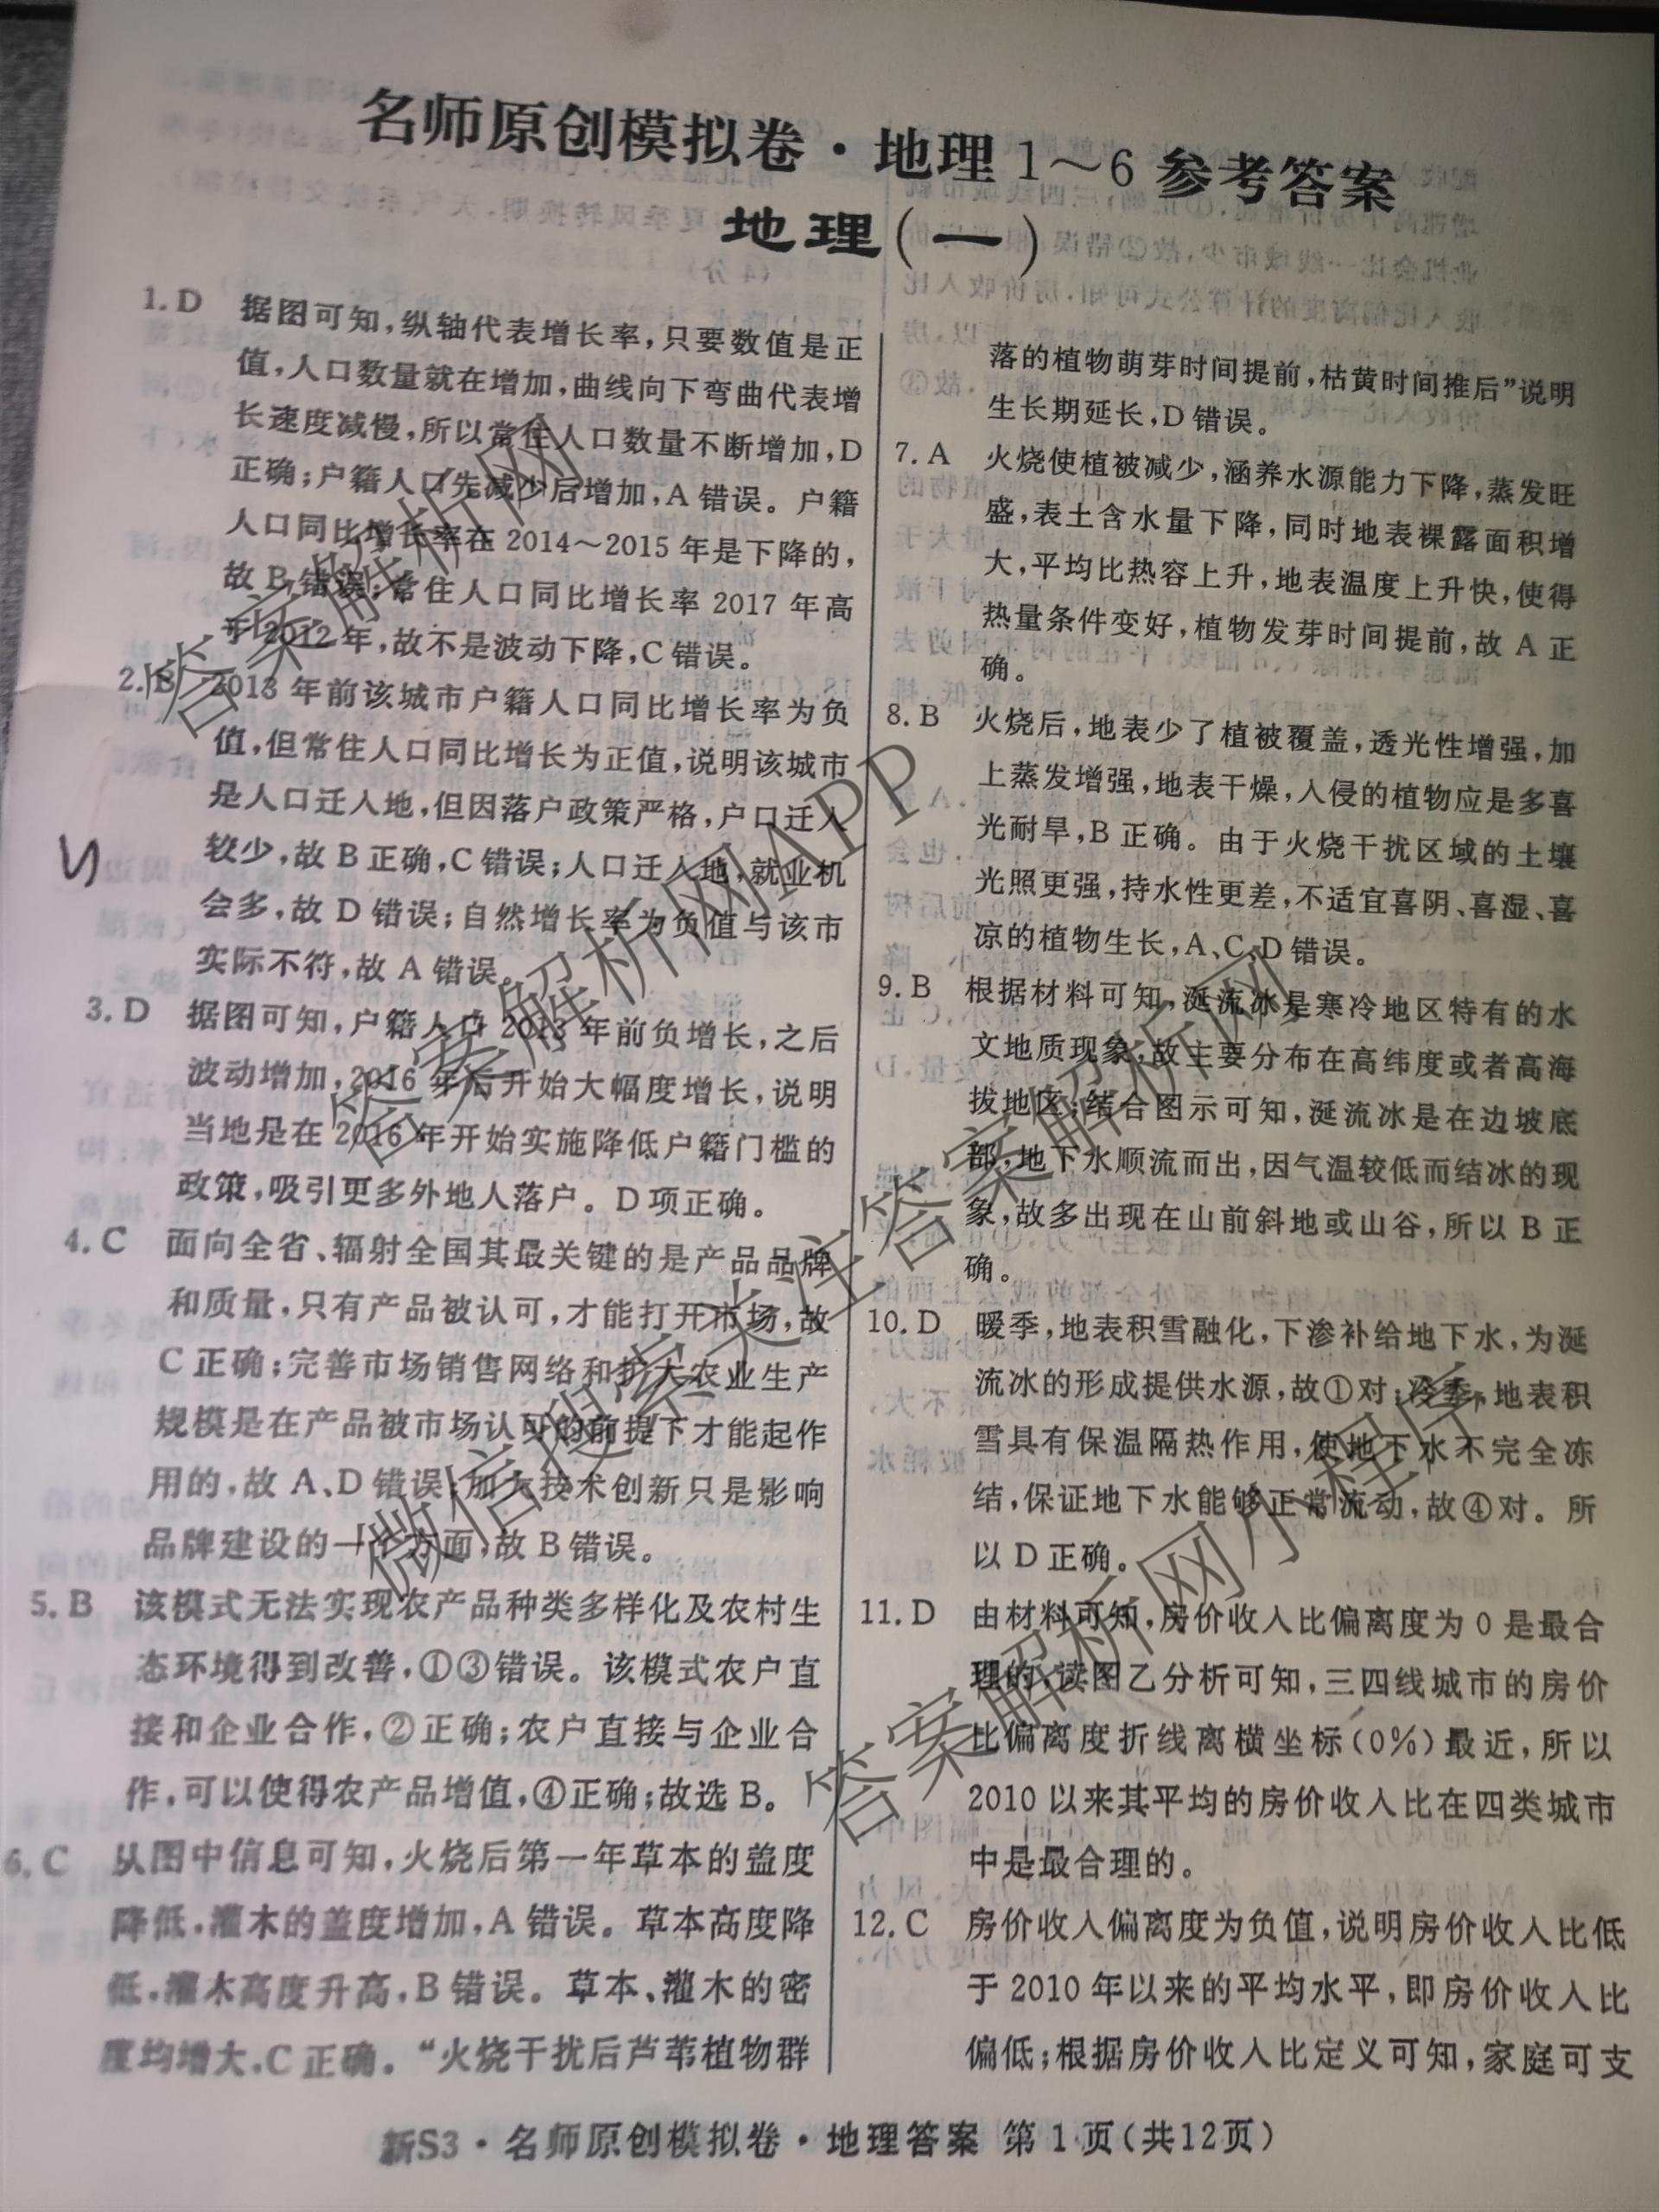 名师原创模拟卷·地理1～6参考答案
地理(一)
1.D 据图可知,纵轴代表增长率,只要数值是正
值,人口数量就在增加,曲线向下弯曲代表增
长速度减慢,所以常住人口数量不断增加,D
正确;户籍人口先减少后增加,A错误。户籍
人口同比增长率在2014～2015年是下降的,
故B错误;常住人口同比增长率2017年高
于2012年,故不是波动下降,C错误。
2.B 2013年前该城市户籍人口同比增长率为负
值,但常住人口同比增长为正值,说明该城市
是人口迁入地,但因落户政策严格,户口迁入
较少,故B正确,C错误;人口迁入地,就业机
会多,故D错误;自然增长率为负值与该市
实际不符,故A错误。
3.D 据图可知,户籍人口2013年前负增长,之后
波动增加,2016年后开始大幅度增长,说明
当地是在2016年开始实施降低户籍门槛的
政策,吸引更多外地人落户。D项正确。
4.C 面向全省、辐射全国其最关键的是产品品牌
和质量,只有产品被认可,才能打开市场,故
C正确;完善市场销售网络和扩大农业生产
规模是在产品被市场认可的前提下才能起作
用的,故A、D错误;加大技术创新只是影响
品牌建设的一个方面,故B错误。
5.B 该模式无法实现农产品种类多样化及农村生
态环境得到改善,①③错误。该模式农户直
接和企业合作,②正确;农户直接与企业合
作,可以使得农产品增值,④正确;故选B。
6.C 从图中信息可知,火烧后第一年草本的盖度
降低,灌木的盖度增加,A错误。草本高度降
低,灌木高度升高,B错误。草本、灌木的密
度均增大,C正确。“火烧干扰后芦苇植物群
落的植物萌芽时间提前,枯黄时间推后”说明
生长期延长,D错误。
7.A 火烧使植被减少,涵养水源能力下降,蒸发旺
盛,表土含水量下降,同时地表裸露面积增
大,平均比热容上升,地表温度上升快,使得
热量条件变好,植物发芽时间提前,故A正
确。
8.B 火烧后,地表少了植被覆盖,透光性增强,加
上蒸发增强,地表干燥,入侵的植物应是多喜
光耐旱,B正确。由于火烧干扰区域的土壤
光照更强,持水性更差,不适宜喜阴、喜湿、喜
凉的植物生长,A、C、D错误。
9.B 根据材料可知,涎流冰是寒冷地区特有的水
文地质现象,故主要分布在高纬度或者高海
拔地区;结合图示可知,涎流冰是在边坡底
部,地下水顺流而出,因气温较低而结冰的现
象,故多出现在山前斜地或山谷,所以B正
确。
10.D 暖季,地表积雪融化,下渗补给地下水,为涎
流冰的形成提供水源,故①对;冷季,地表积
雪具有保温隔热作用,使地下水不完全冻
结,保证地下水能够正常流动,故④对。所
以D正确。
11.D 由材料可知,房价收入比偏离度为0是最合
理的,读图乙分析可知,三四线城市的房价
比偏离度折线离横坐标(0%)最近,所以
2010以来其平均的房价收入比在四类城市
中是最合理的。
12.C 房价收入偏离度为负值,说明房价收入比低
于2010年以来的平均水平,即房价收入比
偏低;根据房价收入比定义可知,家庭可支
新S3·名师原创模拟卷·地理答案 第1页(共12页)
答案解析网
答案解析网APP
微信搜索关注答案解析网
答案解析网小程序